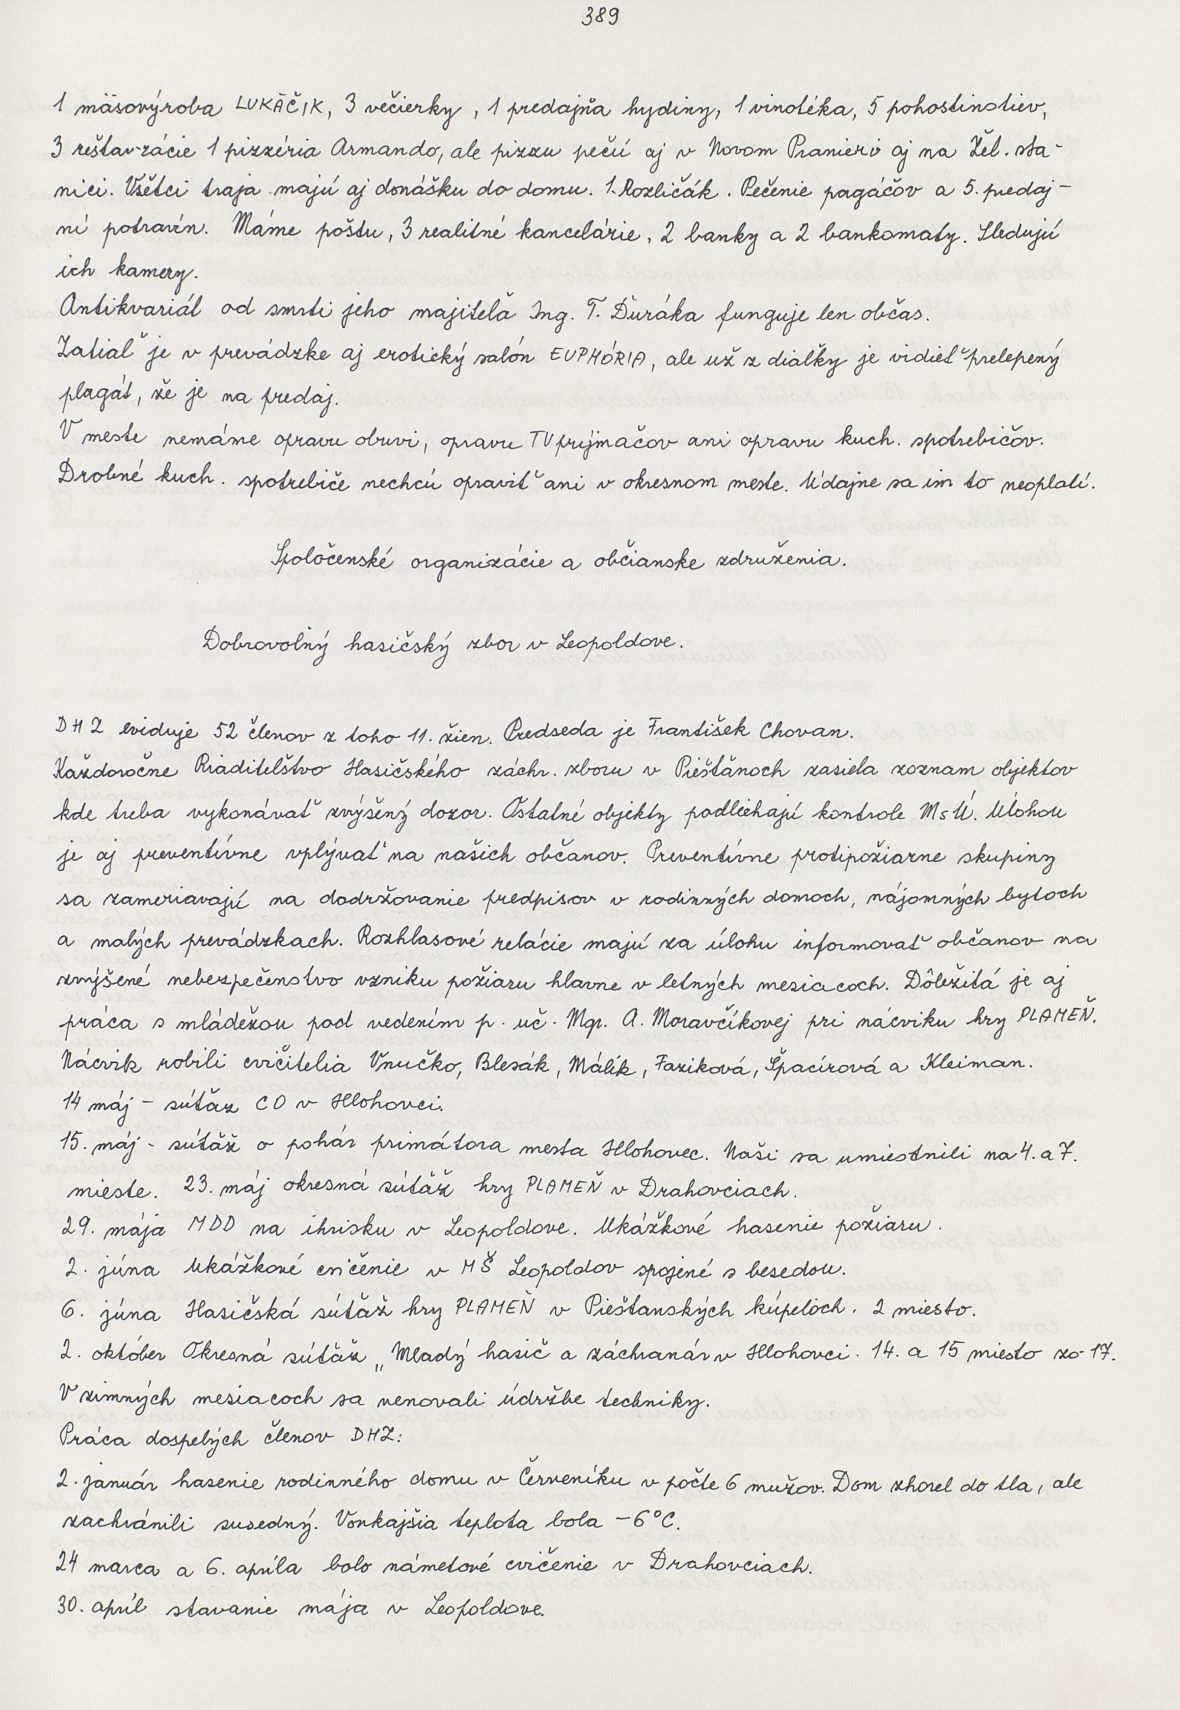 389
1 mäsovýroba LUKÁČIK, 3 večierky, 1 predajňa hydiny, 1 vinotéka, 5 pohostinstiev,
3 reštavrácie 1 pizzéria Armando, ale pizzu pečú aj v Novom Pranieri aj na Žel. sta-
nici. Všetci traja majú aj donášku do domu. 1. Rozličák. Pečenie pagáčov a 5. predaj-
ní potravín. Máme poštu, 3 realitné kancelárie, 2 banky a 2 bankomaty. Sledujú
ich kamery.
Antikvariál od smrti jeho majiteľa Ing. T. Ďuráka funguje len občas.
Zatiaľ je v prevádzke aj erotický salón EUPHÓRIA, ale už z diaľky je vidieť prelepený
plagát, že je na predaj.
V meste nemáme opravu obuvi, opravu TV prijmačov ani opravu kuch. spotrebičov.
Drobné kuch. spotrebiče nechcú opraviť ani v okresnom meste. Údajne sa im to neoplatí.
Spoločenské organizácie a občianske združenia.
Dobrovoľný hasičský zbor v Leopoldove.
DHZ eviduje 52 členov z toho 11. žien. Predseda je František Chovan.
Každoročne Riaditeľstvo Hasičského záchr. zboru v Piešťanoch zasiela zoznam objektov
kde treba vykonávať zvýšený dozor. Ostatné objekty podliehajú kontrole MsÚ. Úlohou
je aj preventívne vplývať na našich občanov. Preventívne protipožiarne skupiny
sa zameriavajú na dodržovanie predpisov v rodinných domoch, nájomných bytoch
a malých prevádzkach. Rozhlasové relácie majú za úlohu informovať občanov na
zvýšené nebezpečenstvo vzniku požiaru hlavne v letných mesiacoch. Dôležitá je aj
práca s mládežou pod vedením p. uč. Mgr. A. Moravčíkovej pri nácviku hry PLAMEŇ.
Nácvik robili cvičitelia Vnučko, Blesák, Málik, Faziková, Špacírová a Kleiman.
14 máj - súťaz CO v Hlohovci.
15. máj - súťăž o pohár primátora mesta Hlohovec. Naši sa umiestnili na 4. a 7.
mieste. 23. máj okresná súťăž hry PLAMEŇ v Drahovciach.
29. mája MDD na ihrisku v Leopoldove. Ukážkové hasenie požiaru.
2. júna Ukážkové cvičenie v MŠ Leopoldov spojené s besedou.
6. júna Hasičská súťaž hry PLAMEŇ v Piešťanských kúpeľoch. 2 miesto.
2. október Okresná súťăž „Mladý hasič a záchranár v Hlohovci. 14. a 15 miesto zo 17.
V zimných mesiacoch sa venovali údržbe techniky.
Práca dospelých členov DHZ:
2. január hasenie rodinného domu v Červeníku v počte 6 mužov. Dom zhorel do tla, ale
zachránili susedný. Vonkajšia teplota bola -6°C.
24 marca a 6. apríla bolo námetové cvičenie v Drahovciach.
30. apríl stavanie mája v Leopoldove.